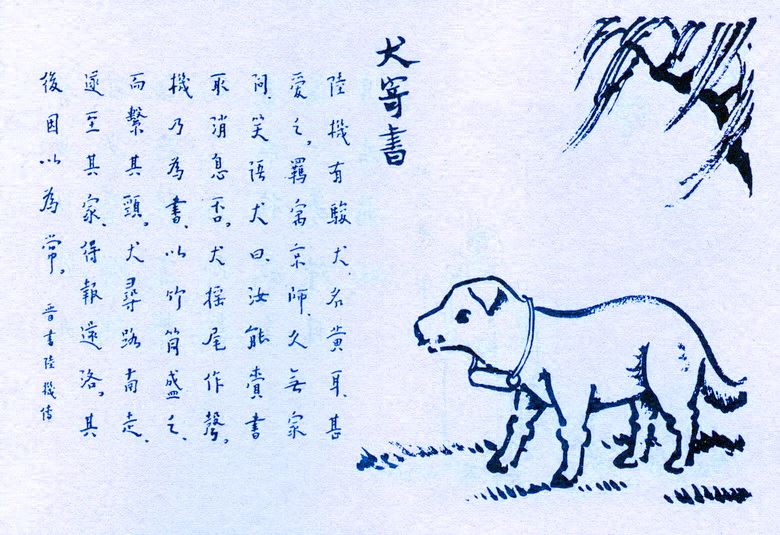 犬寄書
陸機有駿犬、名黃耳、甚
愛之。羈寓京師、久無家
問、笑語犬曰、汝能賫書
取消息否。犬搖尾作聲。
機乃為書、以竹筒盛之、
而繫其頸。犬尋路南走、
遂至其家、得報還洛。其
後因以為常。 晋書陸機傳